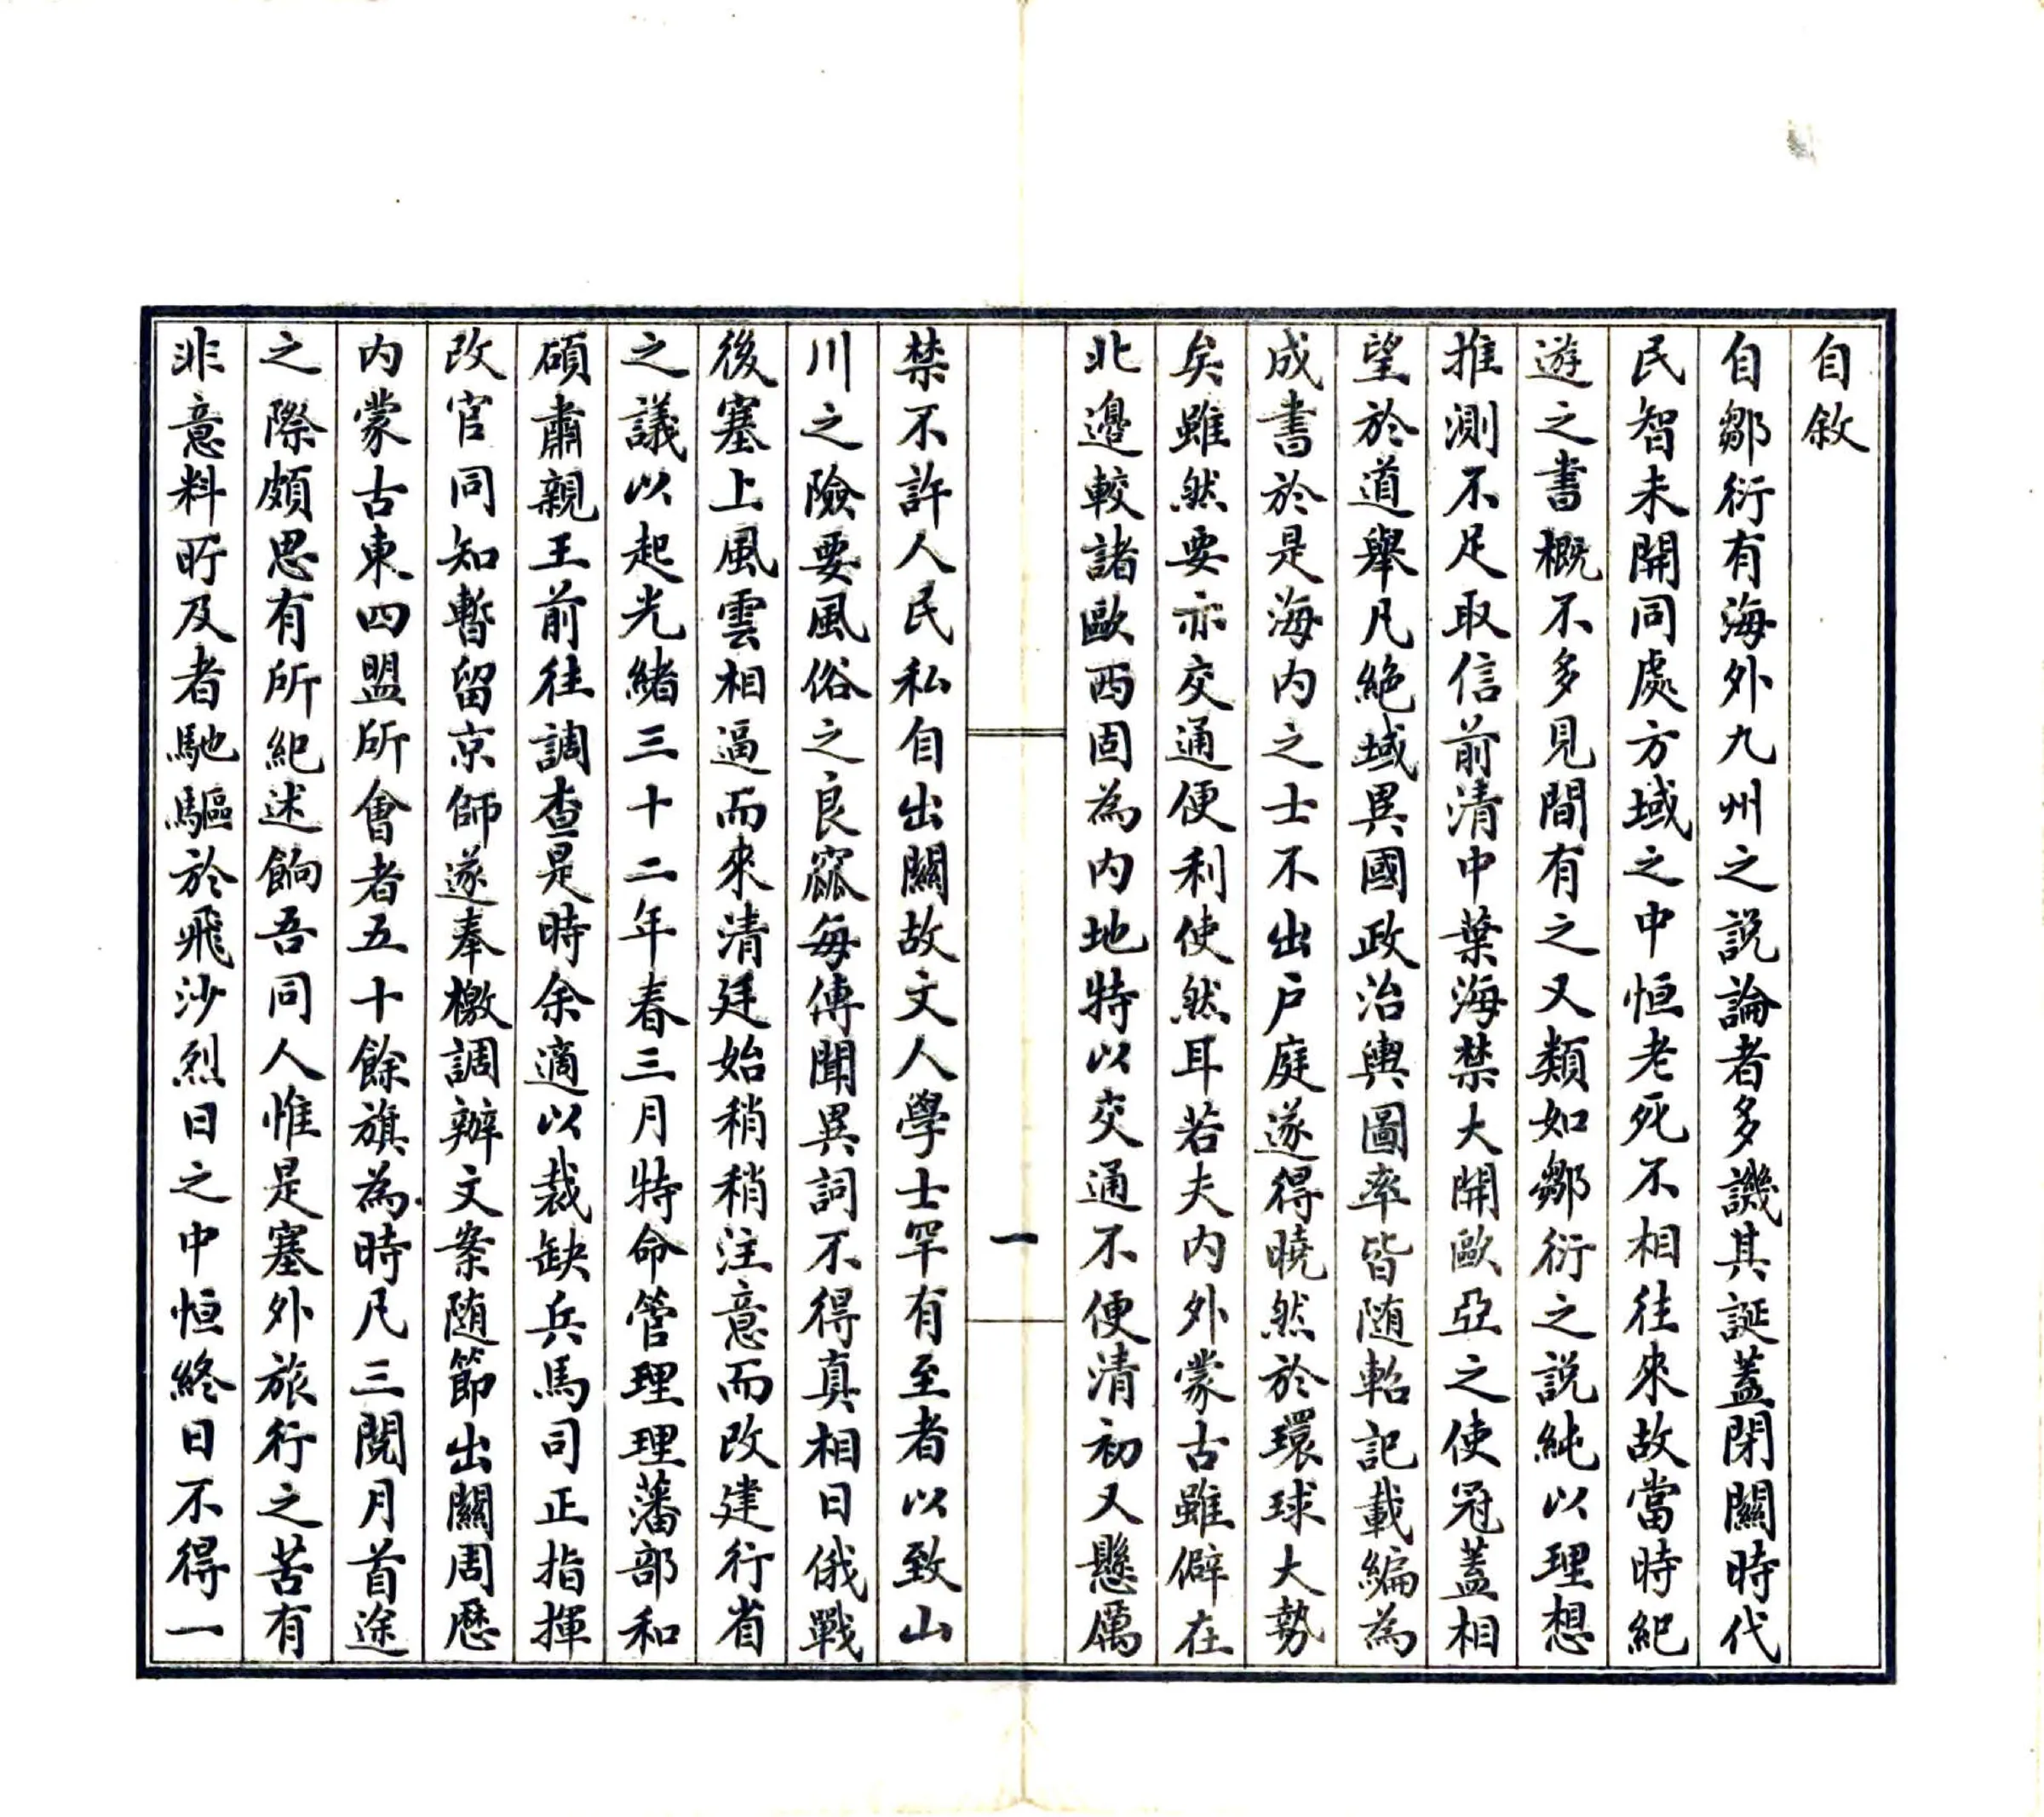 自敘
自鄒衍有海外九州之説論者多譏其誕蓋閉關時代
民智未開同處方域之中恒老死不相往來故當時紀
遊之書概不多見間有之又類如鄒衍之説純以理想
推測不足取信前清中葉海禁大開歐亞之使冠蓋相
望於道舉凡絶域異國政治輿圖率皆随軺記載編為
成書於是海内之士不出戶庭遂得曉然於環球大勢
矣雖然要亦交通便利使然耳若夫内外蒙古雖僻在
北邊較諸歐西固為内地特以交通不便清初又懸厲
一
禁不許人民私自出關故文人學士罕有至者以致山
川之險要風俗之良窳每傳聞異詞不得真相日俄戰
後塞上風雲相逼而來清廷始稍稍注意而改建行省
之議以起光緒三十二年春三月特命管理理藩部和
碩肅親王前往調查是時余適以裁缺兵馬司正指揮
改官同知暫留京師遂奉檄調辦文案随節出關周歷
内蒙古東四盟所會者五十餘旗為時凡三閱月首途
之際頗思有所紀述餉吾同人惟是塞外旅行之苦有
非意料所及者馳驅於飛沙烈日之中恒終日不得一